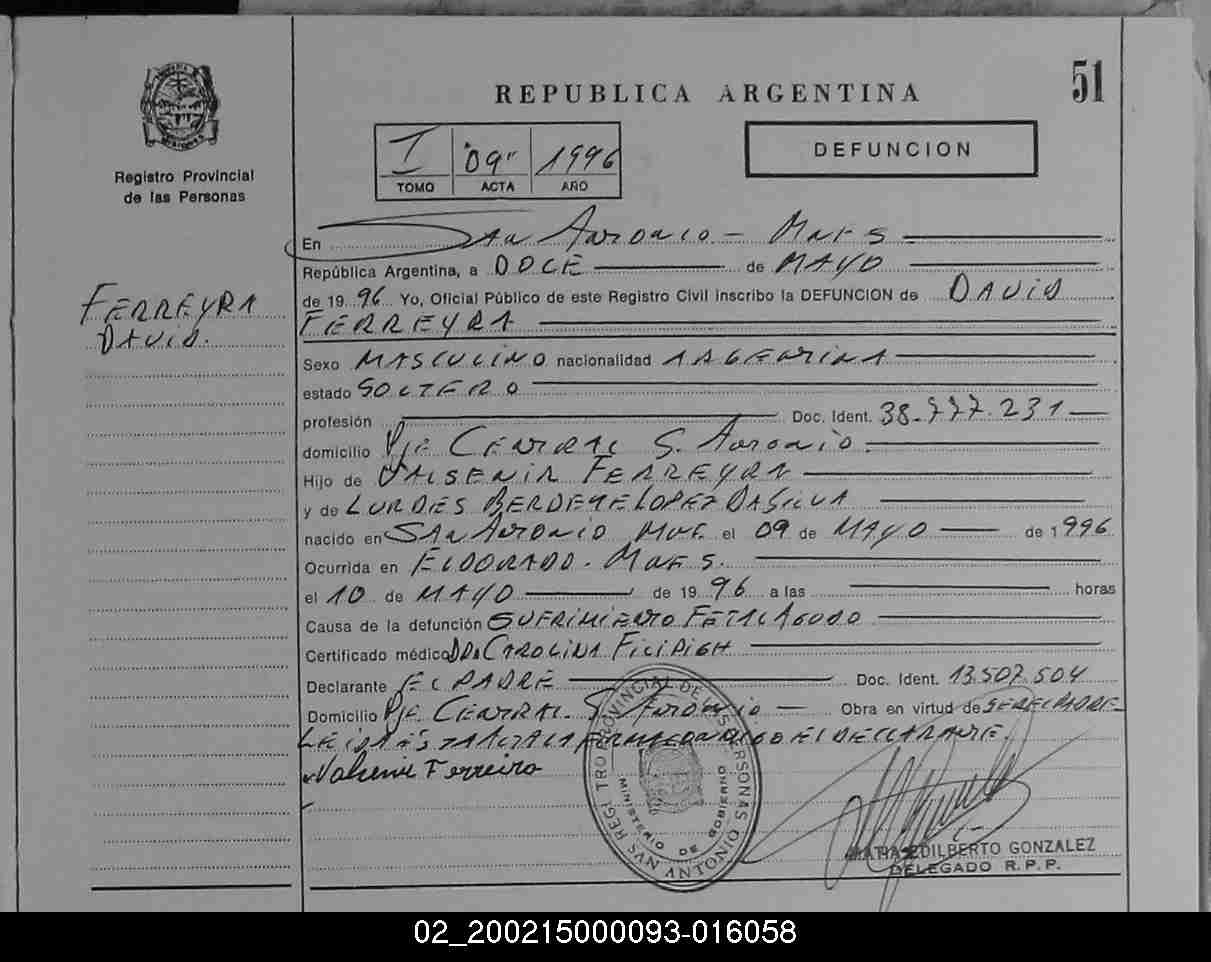 51
REPUBLICA ARGENTINA
DEFUNCION
I "09" 1996
TOMO ACTA AÑO
Registro Provincial
de las Personas
FERREYRA
DAVID.
En San Antonio - Mnes
República Argentina, a DOCE de MAYO
de 1996 Yo, Oficial Público de este Registro Civil inscribo la DEFUNCION de DAVID
FERREYRA
Sexo MASCULINO nacionalidad ARGENTINA
estado SOLTERO
profesión Doc. Ident. 38.777.231
domicilio Pje CENTRAL S. Antonio.
Hijo de VALSENIR FERREYRA
y de LURDES LOPEZ DASILVA
nacido en SAN ANTONIO Mnes. el 09 de MAYO de 1996
Ocurrida en ELDORADO. Mnes.
el 10 de MAYO de 1996 a las horas
Causa de la defunción SUFRIMIENTO FETAL AGUDO
Certificado médico DRA CAROLINA
Declarante EL PADRE Doc. Ident. 13.507.504
Domicilio Pje CENTRAL. S. Antonio - Obra en virtud de SER EL PADRE-
LEIDA ESTA ACTA LA FIRMA CONMIGO EL DECLARANTE.
Valsenir Ferreira
REGISTRO PROVINCIAL DE LAS PERSONAS
MINISTERIO DE GOBIERNO
SAN ANTONIO
EDILBERTO GONZALEZ
DELEGADO R.P.P.
02_200215000093-016058